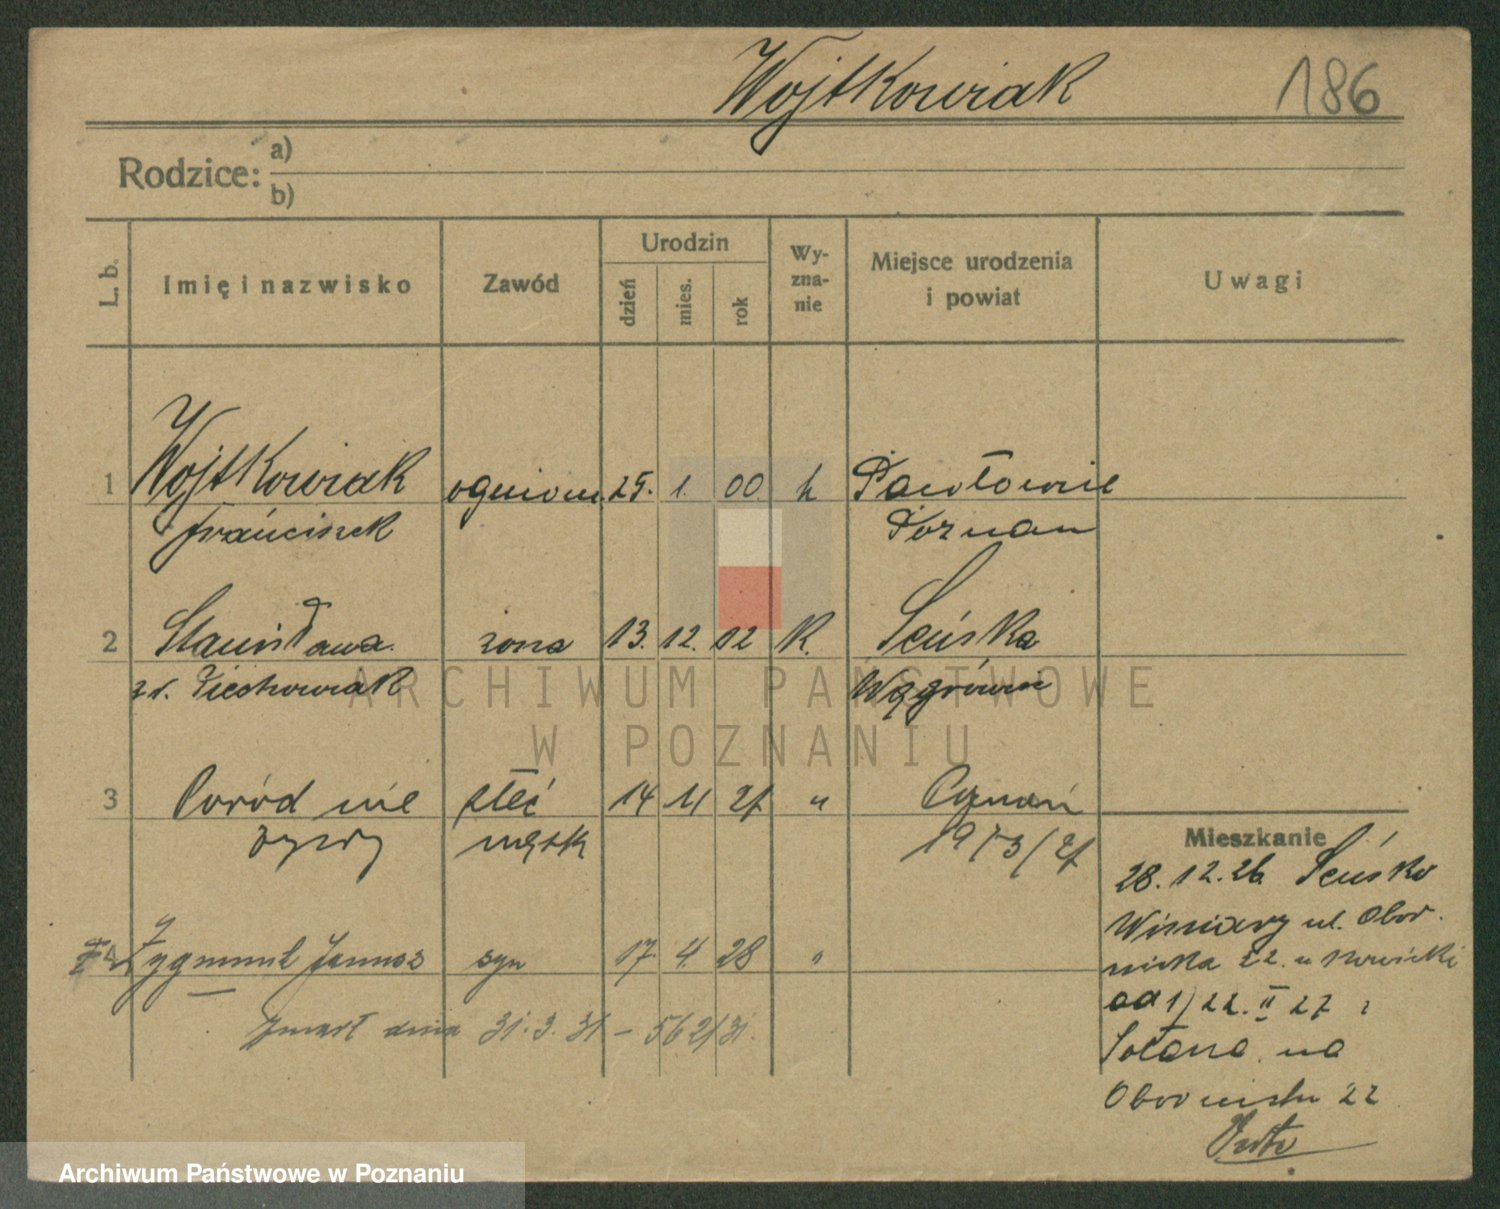 Wojtkowiak 186
Rodzice: a)
b)
L. b. Imię i nazwisko Zawód Urodzin dzień mies. rok Wy-zna-nie Miejsce urodzenia i powiat Uwagi
1 Wojtkowiak 25. 1. 00 k Pawłowie
Franciszek Poznan
2 Stanisława żona 13. 12. 02 K. Ścińska
zd. Piechowiak Wągrówiec
ARCHIWUM PAŃSTWOWE
W POZNANIU
3 Poród nie płeć 14 11 27 " Poznań
żywy męsk 1973/27
Mieszkanie
28.12.26
Winiary ul. Obor-
nicka 22. u Nowicki
4 Zygmunt Janusz syn 17. 4. 28 "
od 1) 22. II 27
zmarł dnia 31.3.31 - 562/31.
Sołacz na
22
Archiwum Państwowe w Poznaniu